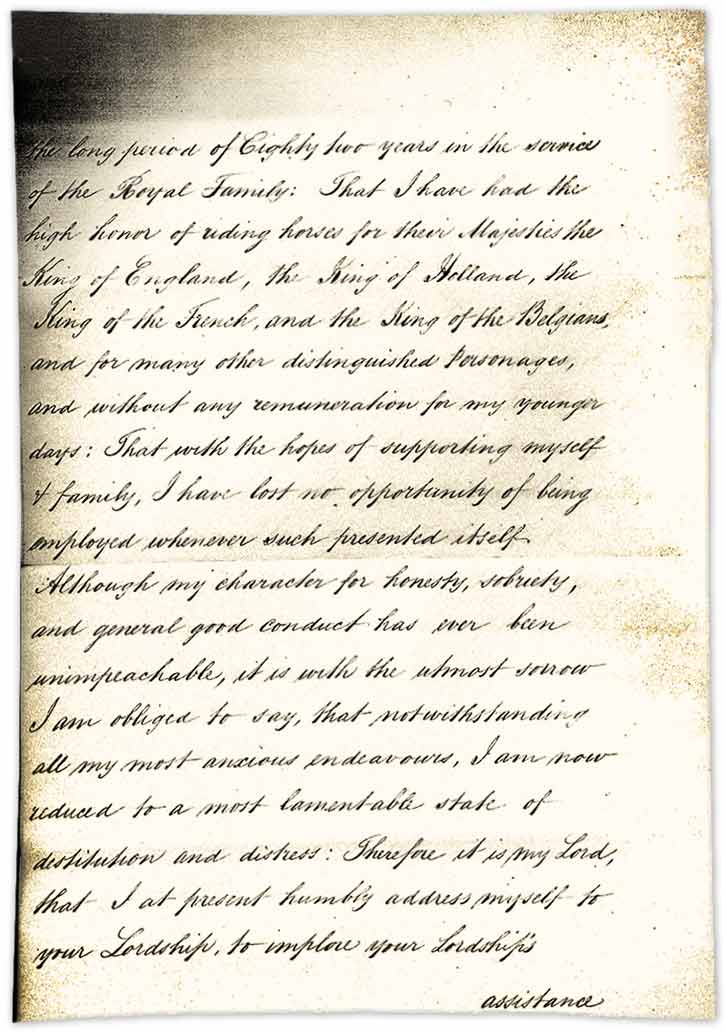 the long period of Eighty two years in the service
of the Royal Family: That I have had the
high honor of riding horses for their Majesties the
King of England, the King of Holland, the
King of the French, and the King of the Belgians,
and for many other distinguished Personages,
and without any remuneration for my younger
days: That with the hopes of supporting myself
& family, I have lost no opportunity of being
employed whenever such presented itself.
Although my character for honesty, sobriety,
and general good conduct has ever been
unimpeachable, it is with the utmost sorrow
I am obliged to say, that notwithstanding
all my most anxious endeavours, I am now
reduced to a most lamentable state of
destitution and distress: Therefore it is, my Lord,
that I at present humbly address myself to
your Lordship, to implore your Lordship's
assistance